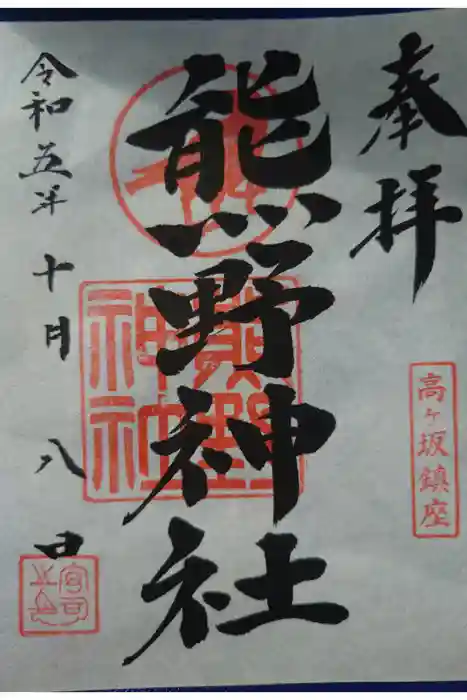 奉拝
高ヶ坂鎮座
熊野神社
熊野神社
令和五年十月八日
宮司之印